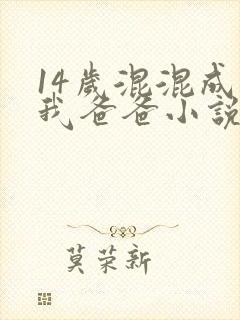 14歲混混成
我爸爸小說
莫荣新